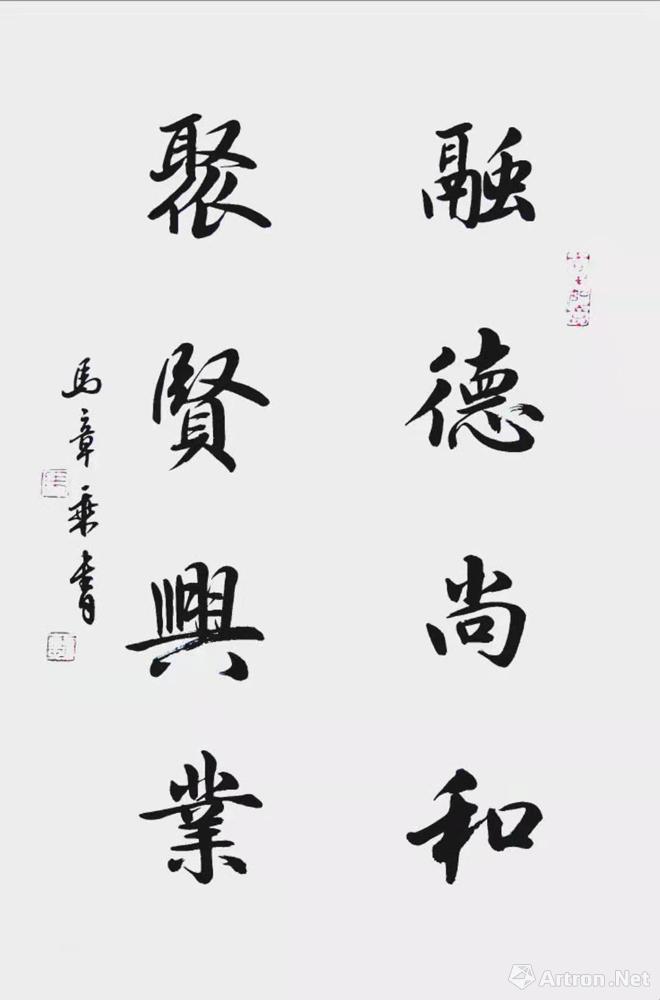 融德尚和
聚賢興業
馬章乘書
Artron.Net